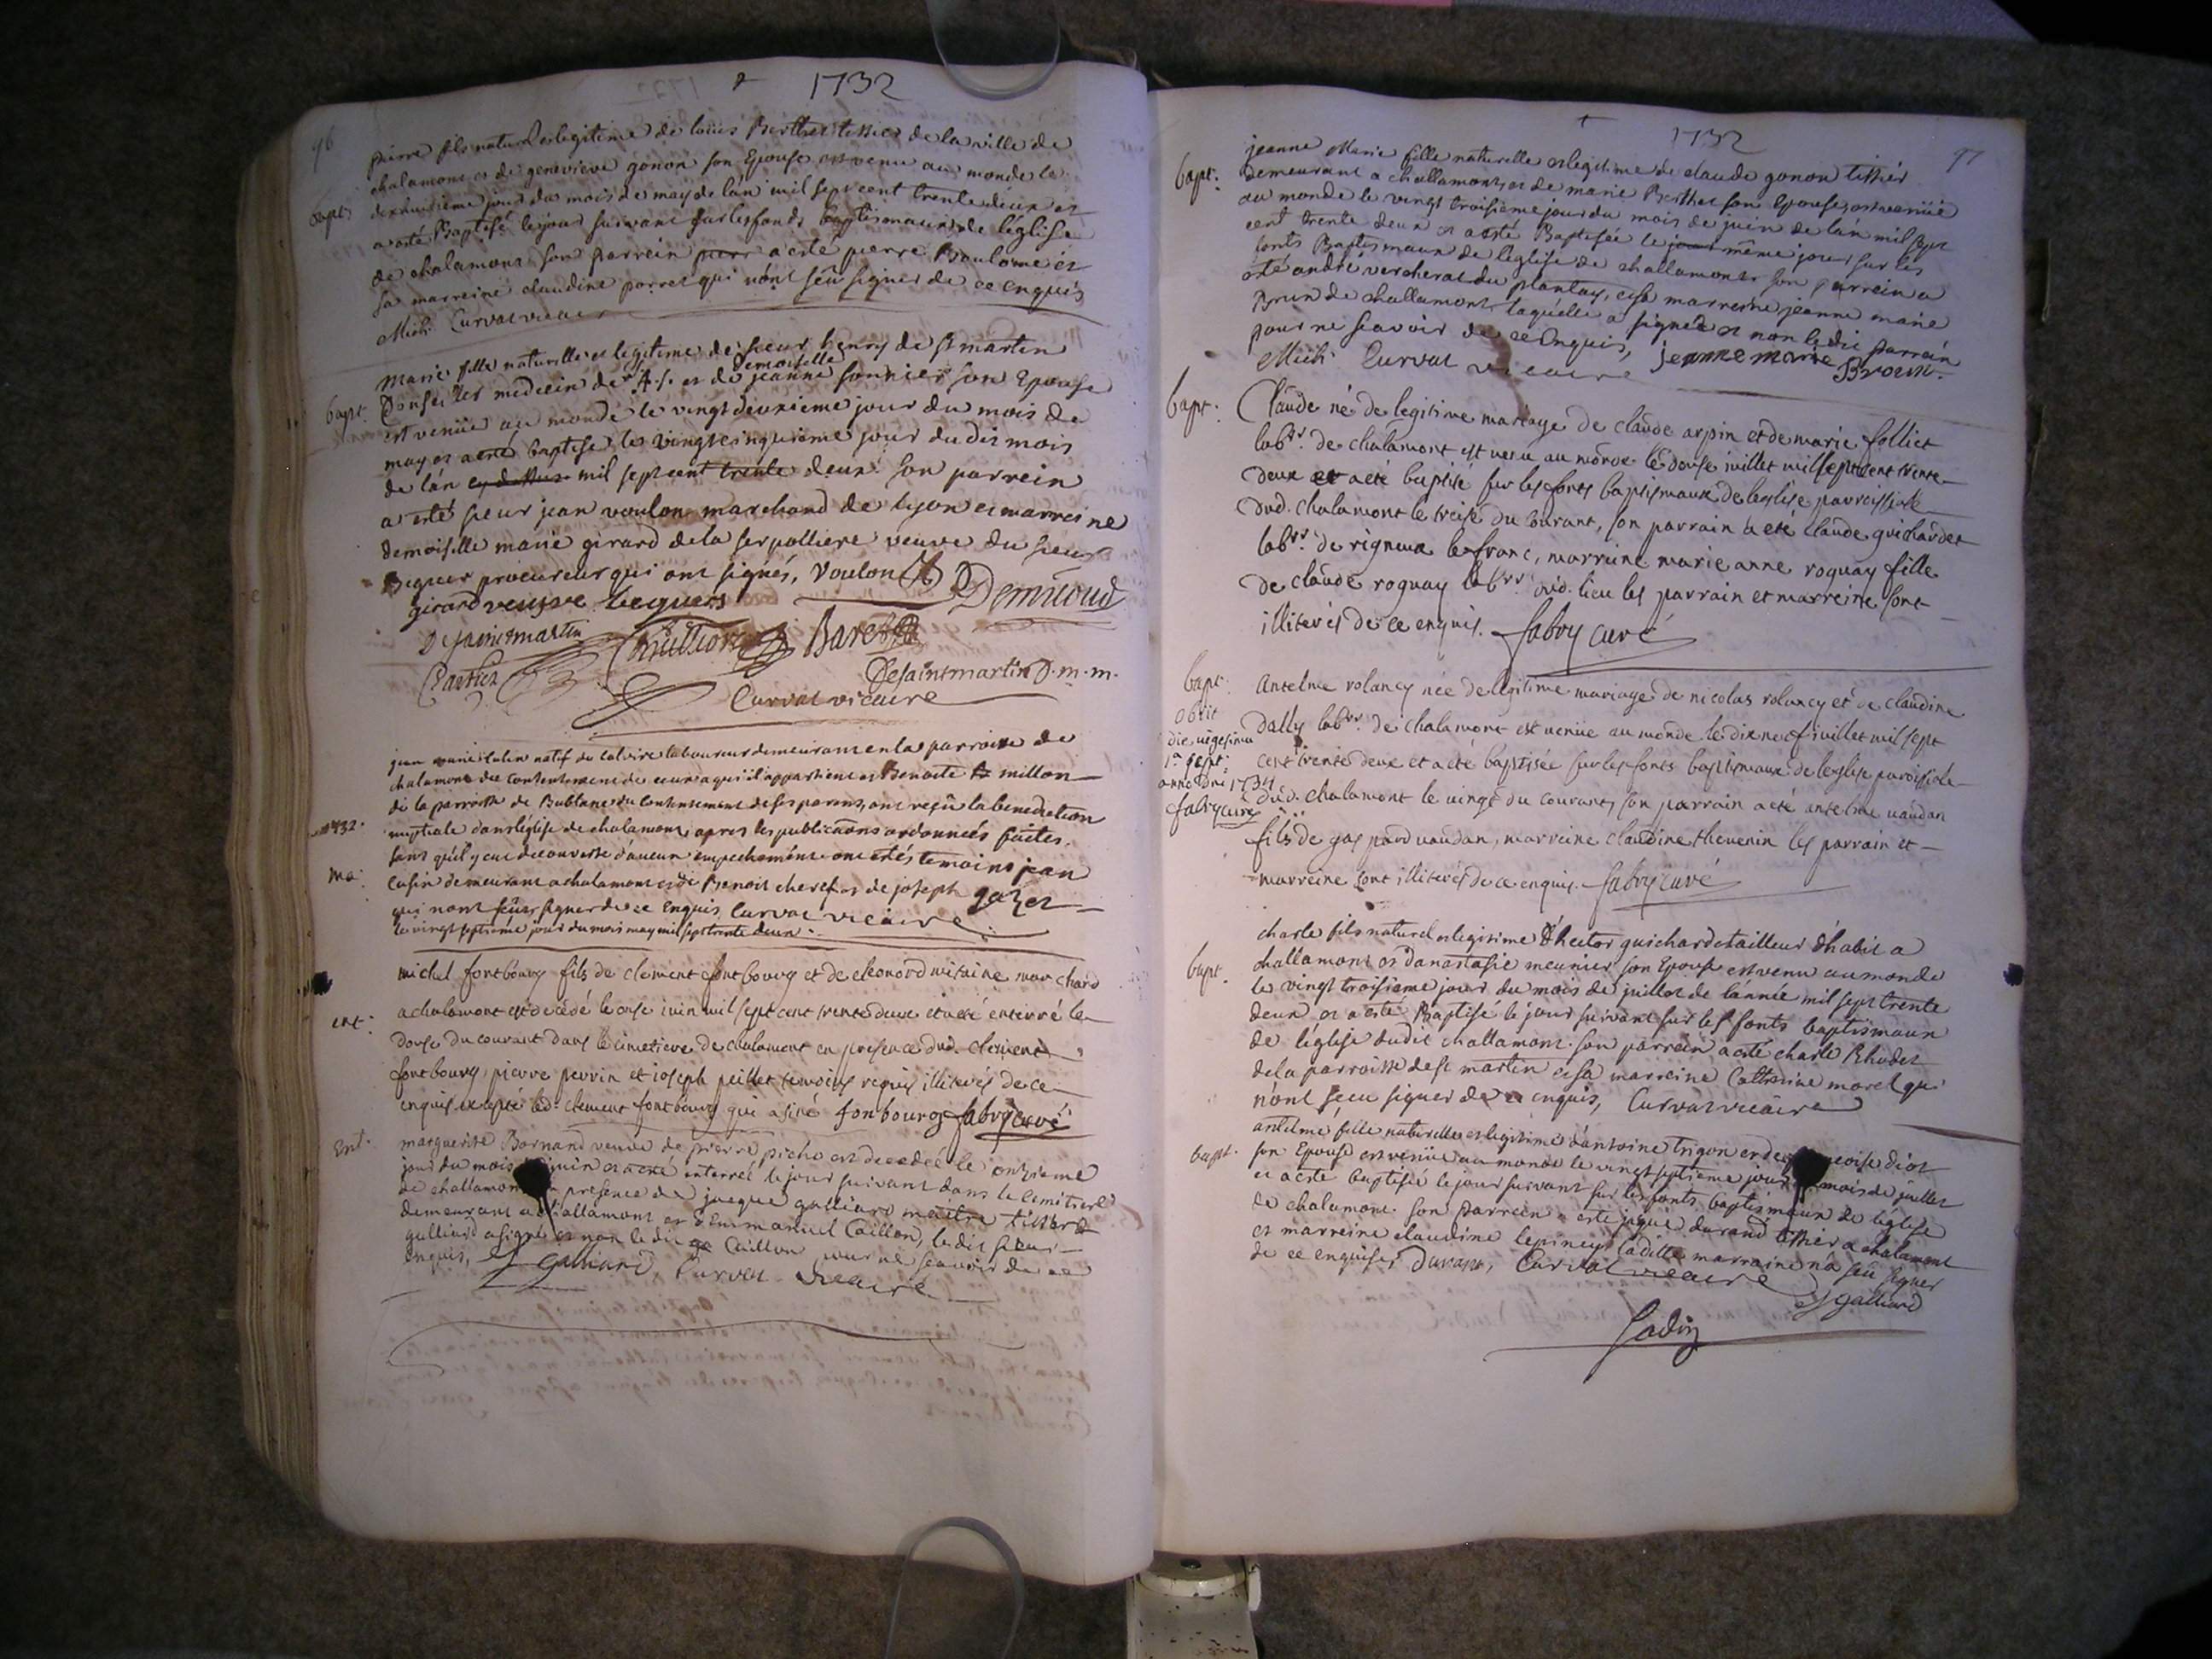 1732
96
pierre fils naturel et legitime de loüis Berthet tissier de la ville de
chalamont et de geneviève gonon son Epouse est venu au monde le
dixhuitième jour du mois de may de l'an mil sept cent trente deux et
bapt:
a esté Baptisé le jour suivant sur les fonds baptismaux de l'église
de chalamont son parrein a esté pierre Boulome et
sa marreine claudine porret qui n'ont sçû signer de ce enquis
Mich: Curvat vicaire
Marie fille naturelle et legitime de sieur henry de st martin
Conseiller medecin de A. S. et de demoiselle jeanne sonnier son Epouse
bapt:
est venüe au monde le vingt deuxieme jour du mois de
may et a esté baptisée le vingt cinquième jour du dit mois
de l'an mil sept cent trente deux son parrein
a esté sieur jean voulon marchand de lyon et marreine
demoiselle marie girard de la serpolliere veuve du sieur
Beguer procureur qui ont signés, Voulon
girard veusve beguers Demucoud
Desainctmartin Baret
Desaintmartin D.m.m.
Curvat vicaire
jean marie natif de laboureur demeurant en la parroisse de
chalamont du consentement de ceux a qui il appartient et Benoite millon
de la parroisse de Bublane du consentement de ses parens, ont reçû la benediction
1732.
nuptiale dans l'église de chalamont apres les publications ordonnées faites,
sans qu'il y eut decouverte d'aucun empechement ont estés temoins jean
Ma:
cusin demeurant a chalamont et de Benoit cheref et de joseph gazet
qui n'ont sçû signer de ce enquis Curvat vicaire
le vingt septième jour du mois may mil sept trente deux
michel fontbourg fils de clement fontbourg et de eleonord marchand
a chalamont est decedé le onse iuin mil sept cent trente deux et a eté enterré le
ent:
douse du courant dans le cimetiere de chalamont en presence dud. clement
fontbourg, pierre perrin et ioseph peillet temoins requis illiterés de ce
enquis excepté led. clement fontbourg qui a siné fonbourg fabry curé
Ent.
marguerite Bornand veuve de pierre picho est decedée le onzieme
jour du mois juin et a esté enterrée le jour suivant dans le cemitiere
de challamont presence de jacque galliard maitre tissier
demeurant a challamont et d'Emmanuel Caillon, le dit sieur
galliard a signé et non le dit Caillon pour ne sçavoir de ce
enquis, J galliard, Curvat vicaire
1732
97
jeanne Marie fille naturelle et legitime de claude gonon tissier
bapt:
demeurant a challamont, et de marie Berthet son Epouse, est venüe
au monde le vingt troisième jour du mois de juin de l'an mil sept
cent trente deux et a esté Baptisée le jour même jour sur les
fonts Baptismaux de l'église de challamont son parrein a
esté andré vercherat du plantay, et sa marreine jeanne marie
Brun de challamont laquelle a signée et non le dit parrain
pour ne sçavoir de ce enquis, jeanne marie Broun.
Mich: Curvat vicaire
bapt:
Claude né de legitime mariage de claude arpin et de marie folliet
labrr. de chalamont est venu au monde le douse iuillet mil sept cent trente
deux et a eté baptisé sur les fonts baptismaux de leglise parroissiale
dud. chalamont le treise du courant, son parrain a eté claude guichardet
labrr. de rigneux le franc, marreine marie anne roguay fille
de claude roguay labrr. aud. lieu les parrain et marreine sont
illiterés de ce enquis. fabry curé
bapt:
Anselme rolancy née de legitime mariage de nicolas rolancy et de claudine
obiit
dally labrr. de chalamont est venüe au monde le dix neuf iuillet mil sept
die vigesima
1a sept.
cent trente deux et a eté baptisée sur les fonts baptismaux de leglise paroissiale
anno Dni 1734
dud. chalamont le vingt du courant, son parrain a eté antelme vaudan
fabry curé
fils de gaspard vaudan, marreine claudine thevenin les parrain et
marreine sont illiterés de ce enquis. fabry curé
charle fils naturel et legitime d'hector guichard tailleur d'habit a
challamont et d'anastasie meunier son Epouse est venu au monde
bapt.
le vingt troisieme jour du mois de juillet de l'année mil sept trente
deux et a esté Baptisé le jour suivant sur les fonts baptismaux
de l'église dudit challamont. son parrein a esté charle Rhudet
de la parroisse de st martin et sa marreine Catherine morel qui
n'ont sceu signer de ce enquis, Curvat vicaire
antelme fille naturelle et legitime d'antoine trigon et de diot
bapt.
son Epouse est venüe au monde le vingt septieme jour mois de juillet
et a esté baptisée le jour suivant sur les fonts baptismaux de l'église
de chalamont. son parrein a esté jaque durand tissier a chalamont
et marreine claudine lepiney ladite marraine n'a sçû signer
de ce enquise, Durant, Curvat vicaire J galliard